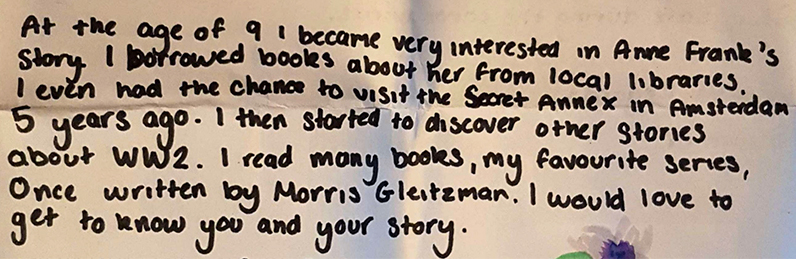 At the age of 9 I became very interested in Anne Frank's
story. I borrowed books about her from local libraries.
I even had the chance to visit the Secret Annex in Amsterdam
5 years ago. I then started to discover other stories
about WW2. I read many books, my favourite series,
Once written by Morris Gleitzman. I would love to
get to know you and your story.